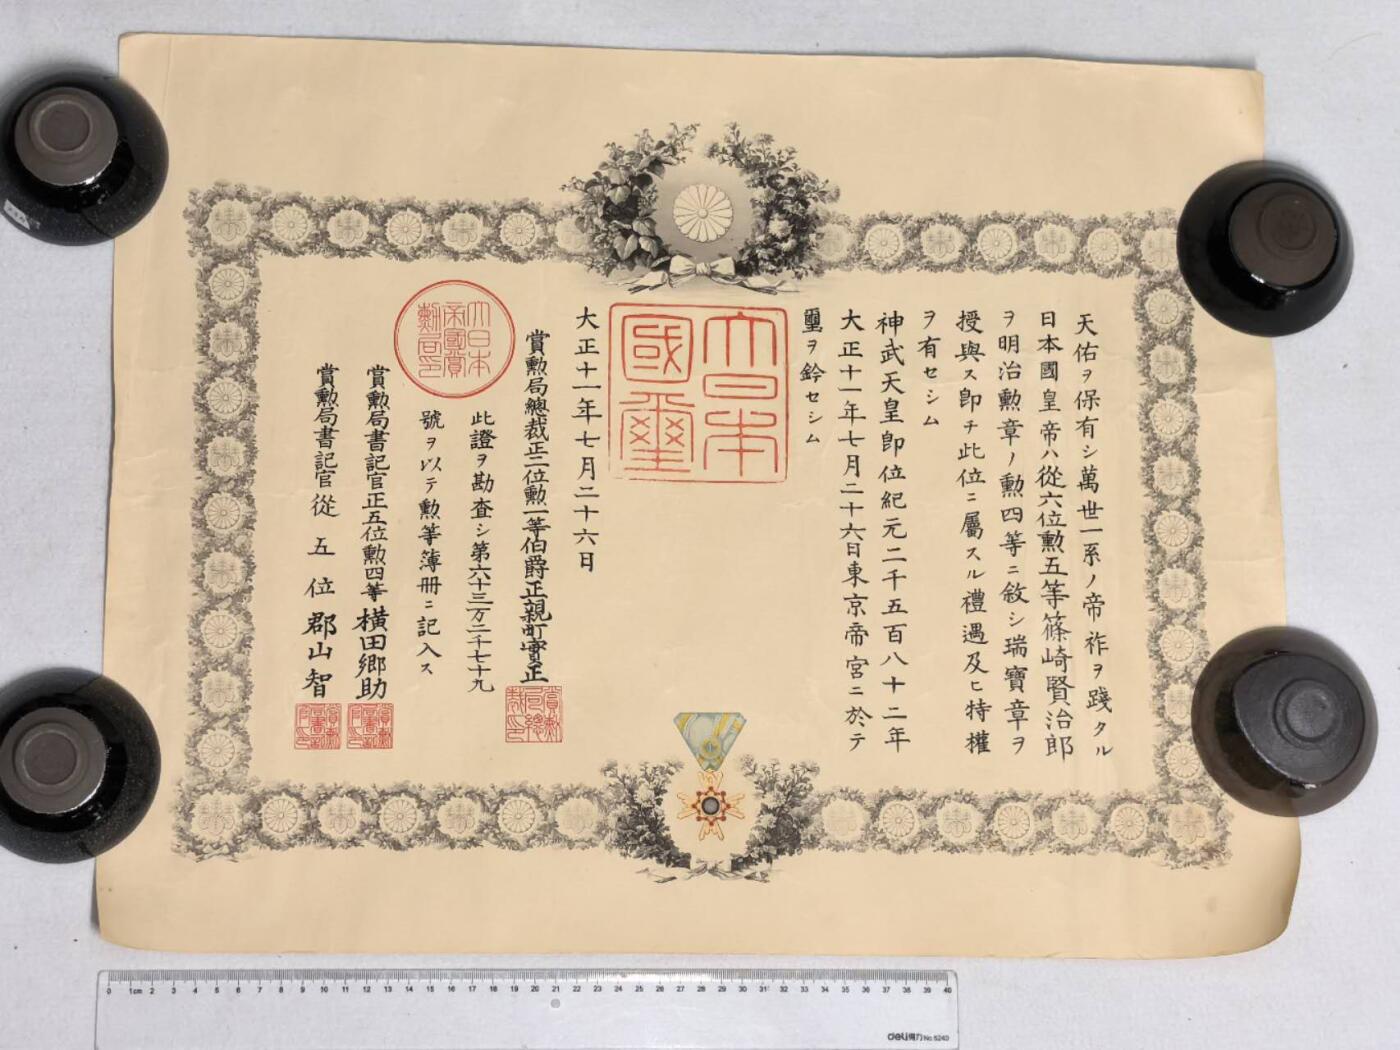 天佑ヲ保有シ萬世一系ノ帝祚ヲ踐タル
日本國皇帝ハ從六位勲五等篠崎賢治郎
ヲ明治勲章ノ勲四等ニ敘シ瑞寶章ヲ
授與ス卽チ此位ニ屬スル禮遇及ヒ特權
ヲ有セシム
神武天皇卽位紀元二千五百八十二年
大正十一年七月二十六日東京帝宮ニ於テ
璽ヲ鈐セシム
大日本
國璽
大正十一年七月二十六日
賞勲局總裁正二位勲一等伯爵正親町實正
賞勲局總裁印
此證ヲ勘査シ第六十三万二千七十九
號ヲ以テ勲等簿册ニ記入ス
大日本
帝國賞
勳局印
賞勲局書記官正五位勲四等横田郷助
賞勲局書記官印
賞勲局書記官從五位郡山智
賞勲局書記官印
0 1cm 2 3 4 5 6 7 8 9 10 11 12 13 14 15 16 17 18 19 20 21 22 23 24 25 26 27 28 29 30 31 32 33 34 35 36 37 38 39 40
deli得力 No.6240